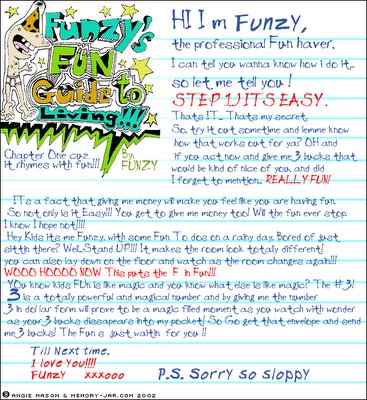 Funzy's
FUN
Guide to
Living!!!
Chapter One cuz
it rhymes with fun!!!
By:
FUNZY
HI I m FUNZY,
the professional Fun haver.
I can tell you wanna know how i do it,..
so let me tell you !
STEP 1.) ITS EASY.
Thats IT... Thats my secret,
So, try it out sometime and lemme know
how that works out for ya? OH and
if you act now and give me 3 bucks that
would be kind of nice of you, and did
I forget to mention... REALLY FUN!
ITs a fact that giving me money will make you feel like you are having fun.
So not only is it Easy!!! You get to give me money too! Will the fun ever stop.
I know I hope not!!!!
Hey Kids its me Funzy, with some Fun To dos on a rainy day. Bored of just
sittin there? WeLL Stand UP!!! It makes the room look totally different!
you can also lay down on the floor and watch as the room changes again!!!
WOOO HOOOO NOW This puts the F in Fun!!!
You know kids FUn is like magic and you know what else is like magic? The #3!
3 is a totally powerful and magical number and by giving me the number
3 in dollar form will prove to be a magic filled moment as you watch with wonder
as your 3 bucks dissapears into my pocket! So Go get that envelope and send
me 3 bucks! The Fun is just waitin for you !!
Till Next time.
I love You!!!!
FUnzy xxxooo
P.S. Sorry so sloppy
© ANGIE MASON & MEMORY-JAR.COM 2002